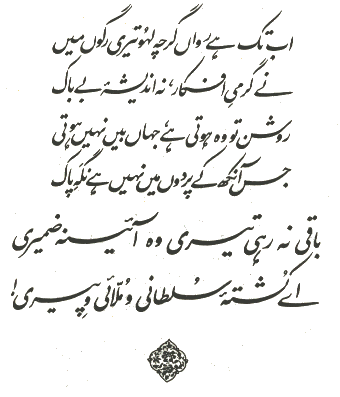 اب تک ہے رواں گرچہ لہو تیری رگوں میں
نے گرمیِ افکار، نہ اندیشۂ بے باک
روشن تو وہ ہوتی ہے جہاں بیں نہیں ہوتی
جس آنکھ کے پردوں میں نہیں ہے نگہِ پاک
باقی نہ رہی تیری وہ آئینہ ضمیری
اے کُشتۂ سُلطانی و مُلّائی و پیری!